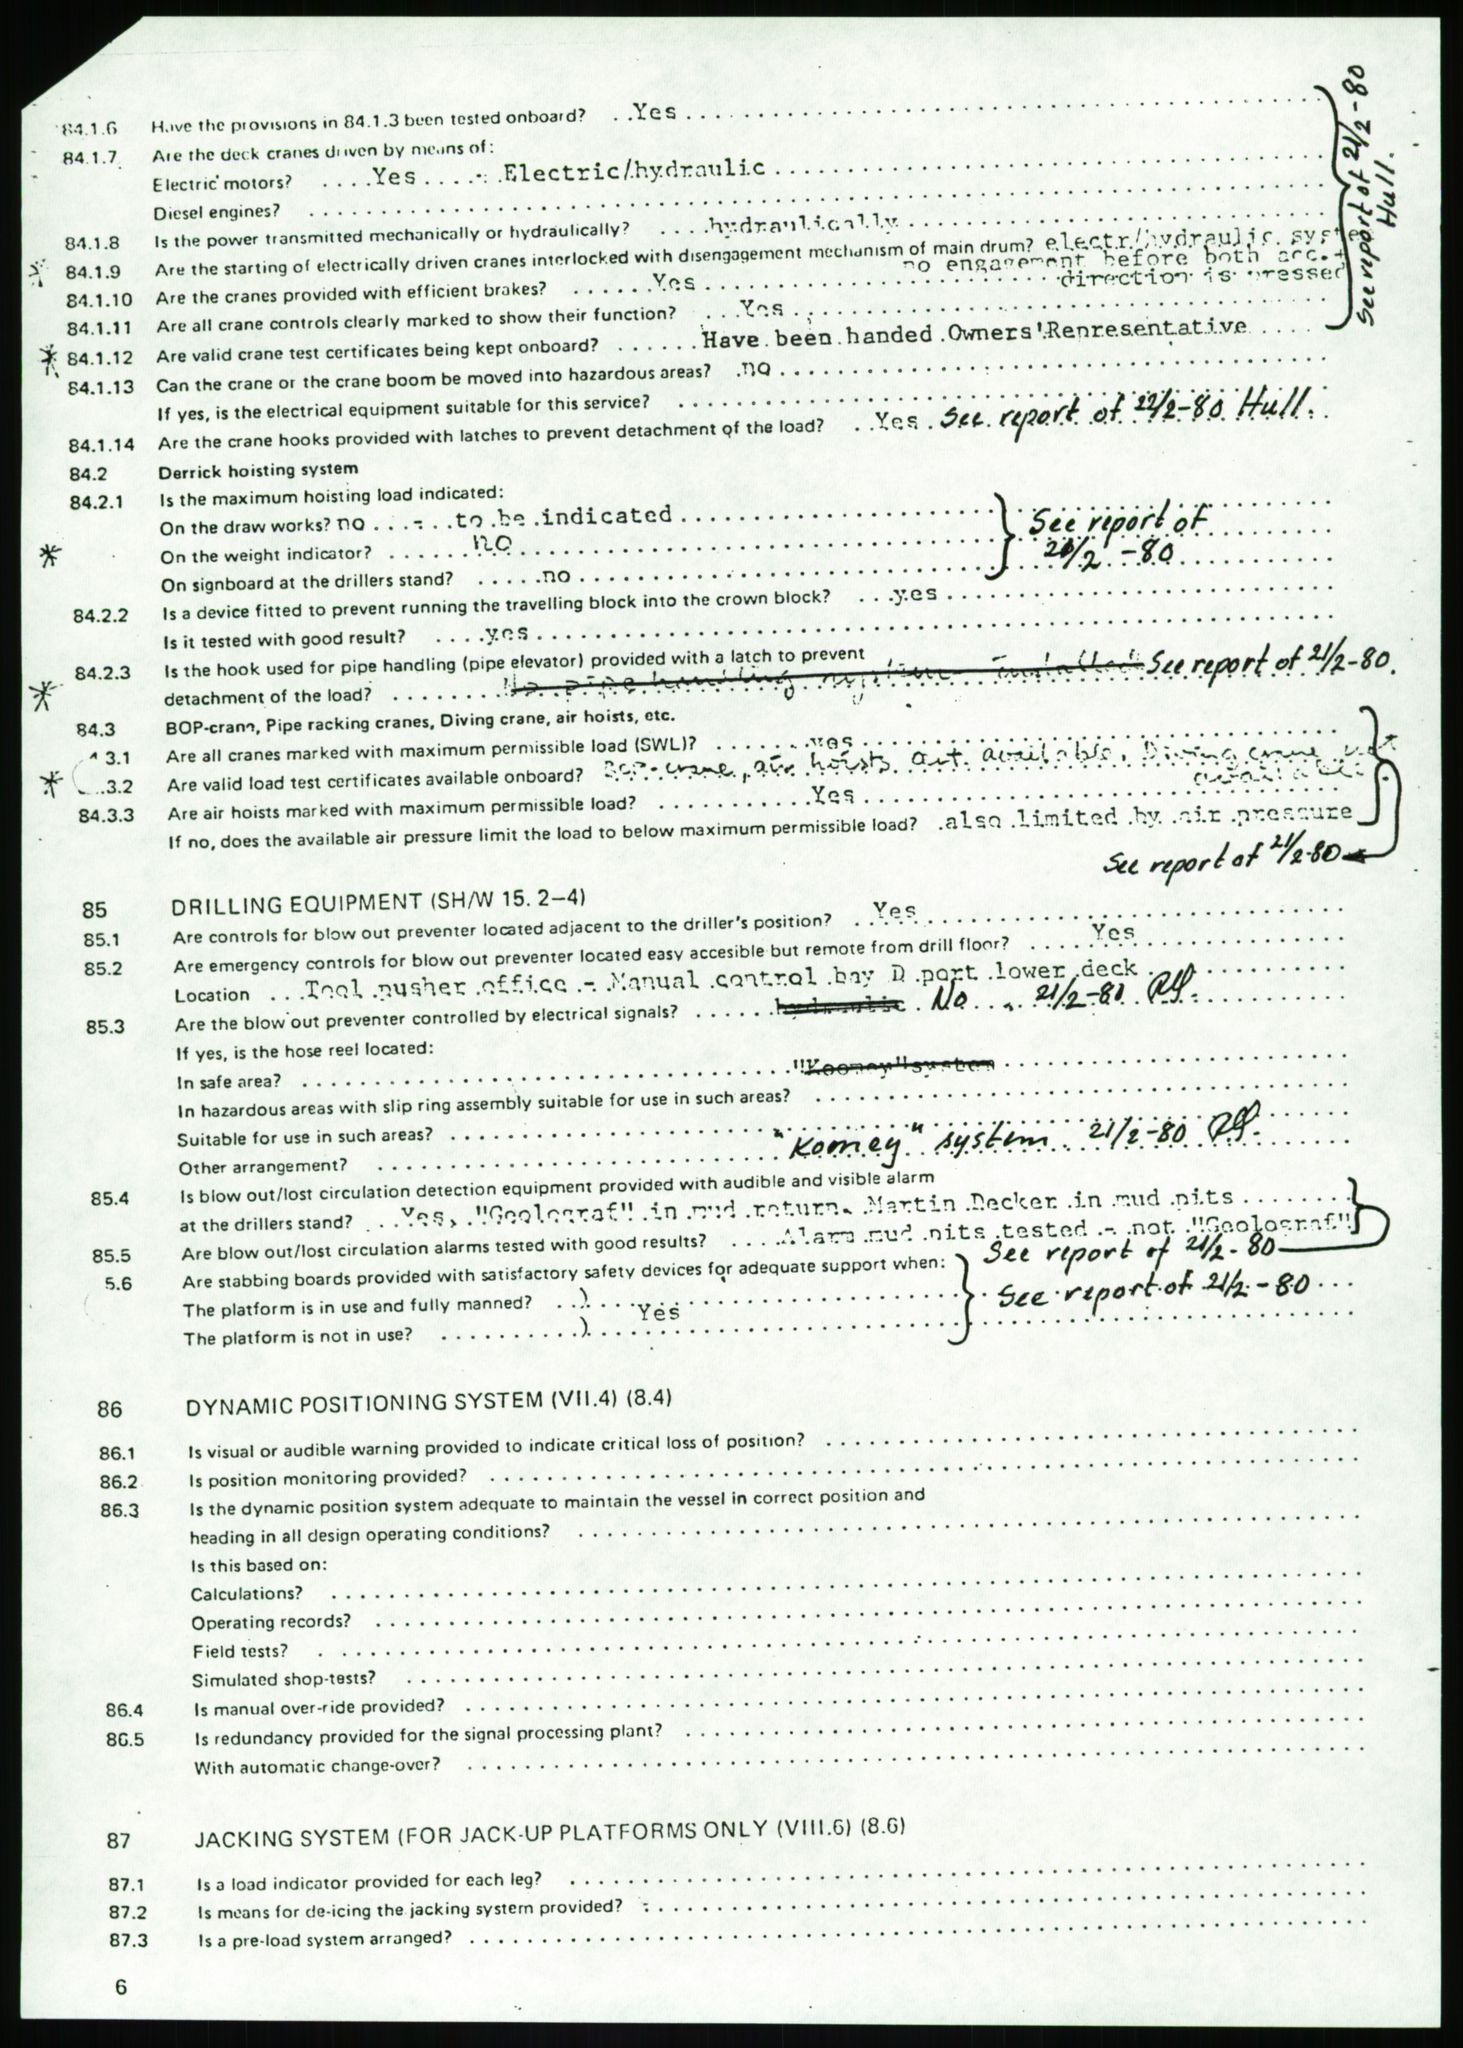 84.1.6 Have the provisions in 84.1.3 been tested onboard? Yes
84.1.7 Are the deck cranes driven by means of:
Electric motors? Yes - Electric/hydraulic
Diesel engines?
84.1.8 Is the power transmitted mechanically or hydraulically? hydraulically
84.1.9 Are the starting of electrically driven cranes interlocked with disengagement mechanism of main drum? electr/hydraulic syste
no engagement before both acc.+
84.1.10 Are the cranes provided with efficient brakes? Yes direction is pressed
84.1.11 Are all crane controls clearly marked to show their function? Yes
See report of 21/2-80 Hull.
84.1.12 Are valid crane test certificates being kept onboard? Have been handed Owners' Representative
84.1.13 Can the crane or the crane boom be moved into hazardous areas? no
If yes, is the electrical equipment suitable for this service?
84.1.14 Are the crane hooks provided with latches to prevent detachment of the load? Yes See report of 22/2-80 Hull.
84.2 Derrick hoisting system
84.2.1 Is the maximum hoisting load indicated:
On the draw works? no - to be indicated
On the weight indicator? no
On signboard at the drillers stand? no
See report of
/2 -80
84.2.2 Is a device fitted to prevent running the travelling block into the crown block? yes
Is it tested with good result? yes
84.2.3 Is the hook used for pipe handling (pipe elevator) provided with a latch to prevent
detachment of the load? No pipe handling system installed See report of 21/2-80.
84.3 BOP-crane, Pipe racking cranes, Diving crane, air hoists, etc.
3.1 Are all cranes marked with maximum permissible load (SWL)? yes
3.2 Are valid load test certificates available onboard? BOP-crane, air hoists are available, Diving crane not
available.
84.3.3 Are air hoists marked with maximum permissible load? Yes
If no, does the available air pressure limit the load to below maximum permissible load? also limited by air pressure
See report of 21/2-80
85 DRILLING EQUIPMENT (SH/W 15. 2-4)
85.1 Are controls for blow out preventer located adjacent to the driller's position? Yes
85.2 Are emergency controls for blow out preventer located easy accesible but remote from drill floor? Yes
Location Tool pusher office - Manual control bay D port lower deck
85.3 Are the blow out preventer controlled by electrical signals? hydraulic No 21/2-80
If yes, is the hose reel located:
In safe area? "Koomey" system
In hazardous areas with slip ring assembly suitable for use in such areas?
Suitable for use in such areas?
Other arrangement? "Komey" system 21/2-80
85.4 Is blow out/lost circulation detection equipment provided with audible and visible alarm
at the drillers stand? Yes, "Geolograf" in mud return. Martin Decker in mud pits
85.5 Are blow out/lost circulation alarms tested with good results? Alarm mud pits tested - not "Geolograf"
See report of 21/2-80
5.6 Are stabbing boards provided with satisfactory safety devices for adequate support when:
The platform is in use and fully manned? )
Yes
The platform is not in use? )
See report of 21/2-80
86 DYNAMIC POSITIONING SYSTEM (VII.4) (8.4)
86.1 Is visual or audible warning provided to indicate critical loss of position?
86.2 Is position monitoring provided?
86.3 Is the dynamic position system adequate to maintain the vessel in correct position and
heading in all design operating conditions?
Is this based on:
Calculations?
Operating records?
Field tests?
Simulated shop-tests?
86.4 Is manual over-ride provided?
86.5 Is redundancy provided for the signal processing plant?
With automatic change-over?
87 JACKING SYSTEM (FOR JACK-UP PLATFORMS ONLY (VIII.6) (8.6)
87.1 Is a load indicator provided for each leg?
87.2 Is means for de-icing the jacking system provided?
87.3 Is a pre-load system arranged?
6